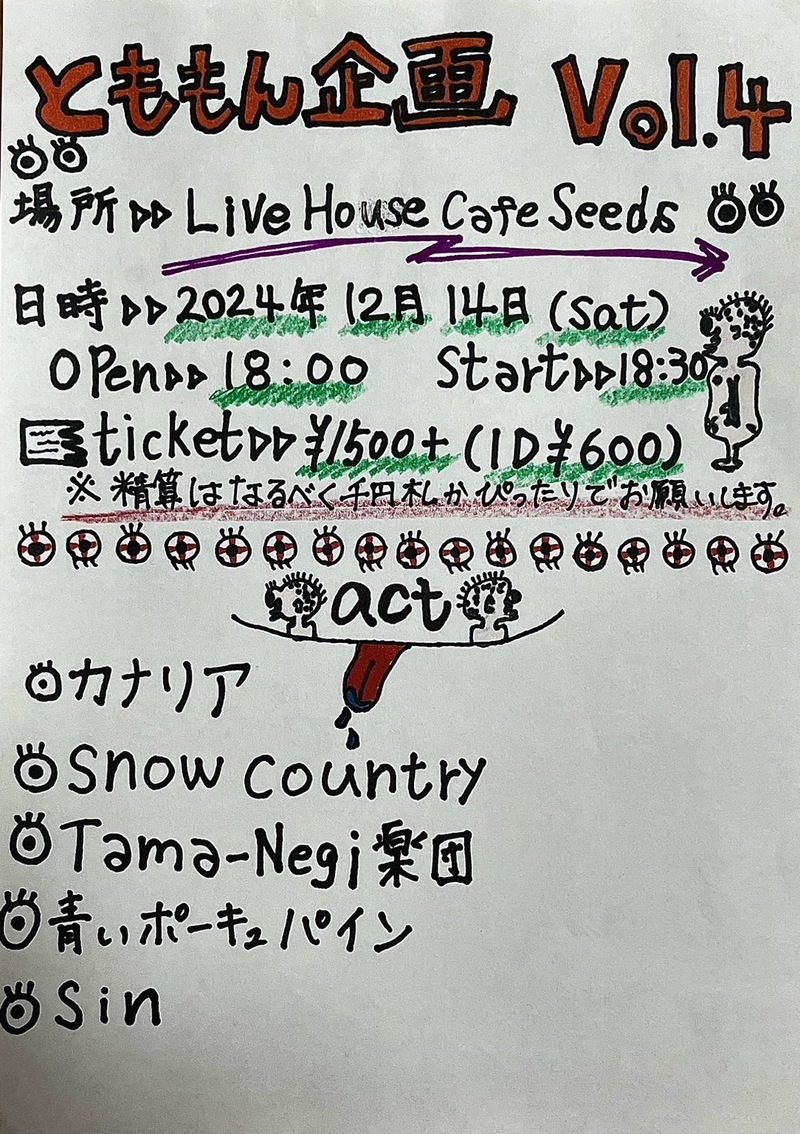 とももん企画 Vol.4
場所▷▷ Live House Cafe Seeds
日時▷▷ 2024年 12月 14日 (sat)
OPen▷▷ 18:00 Start▷▷18:30
ticket▷▷ ¥1500+ (1D ¥600)
※ 精算はなるべく千円札かぴったりでお願いします。
act
カナリア
Snow country
Tama-Negi楽団
青いポーキュパイン
Sin